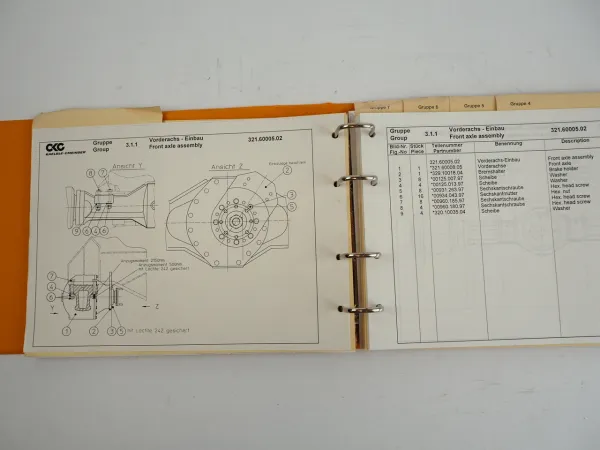 CKG
KAELBLE-GMEINDER
Gruppe
Group
3.1.1
Vorderachs - Einbau
Front axle assembly
321.60005.02
Ansicht Y
Ansicht Z
8 7
2
3
5
9 6 4 6
7
4
6
Y
Z
1
2
3
5
mit Loctite 242 gesichert
mit Loctite 242 gesichert
Gruppe 1
Gruppe 2
Gruppe 3
Gruppe 4
Gruppe
Group
3.1.1
Vorderachs - Einbau
Front axle assembly
321.60005.02
Bild-Nr. Stück Teilenummer Benennung Description
Fig.-No Piece Partnumber
321.60005.02 Vorderachs-Einbau Front axle assembly
1 1 *321.60006.05 Vorderachse Front axle
2 1 Bremshalter Brake holder
3 6 Scheibe Washer
4 4 *00125.013.97 Scheibe Washer
5 6 *00931.263.97 Sechskantschraube Hex. head screw
6 16 *00934.043.97 Sechskantmutter Hex. nut
7 8 *00960.185.97 Sechskantschraube Hex. head screw
8 4 *00960.180.97 Sechskantschraube Hex. head screw
9 4 *320.10035.04 Scheibe Washer